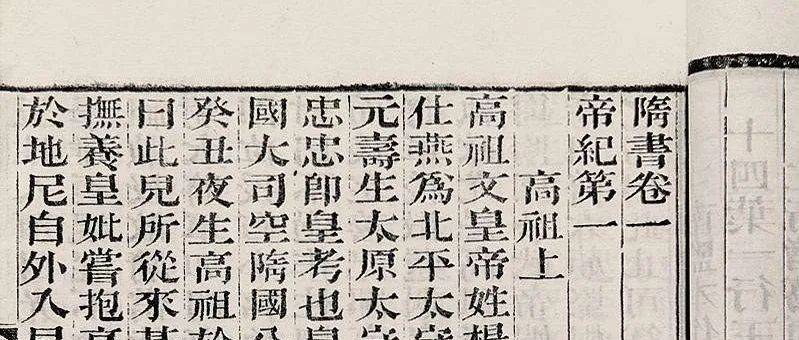 隋書卷一
帝紀第一
高祖上
高祖文皇帝姓楊
仕燕爲北平太守
元壽生太原太守
忠忠卽皇考也皇
國大司空隋國公
癸丑夜生高祖於
曰此兒所從來甚
撫養皇妣嘗抱高
於地尼自外入見